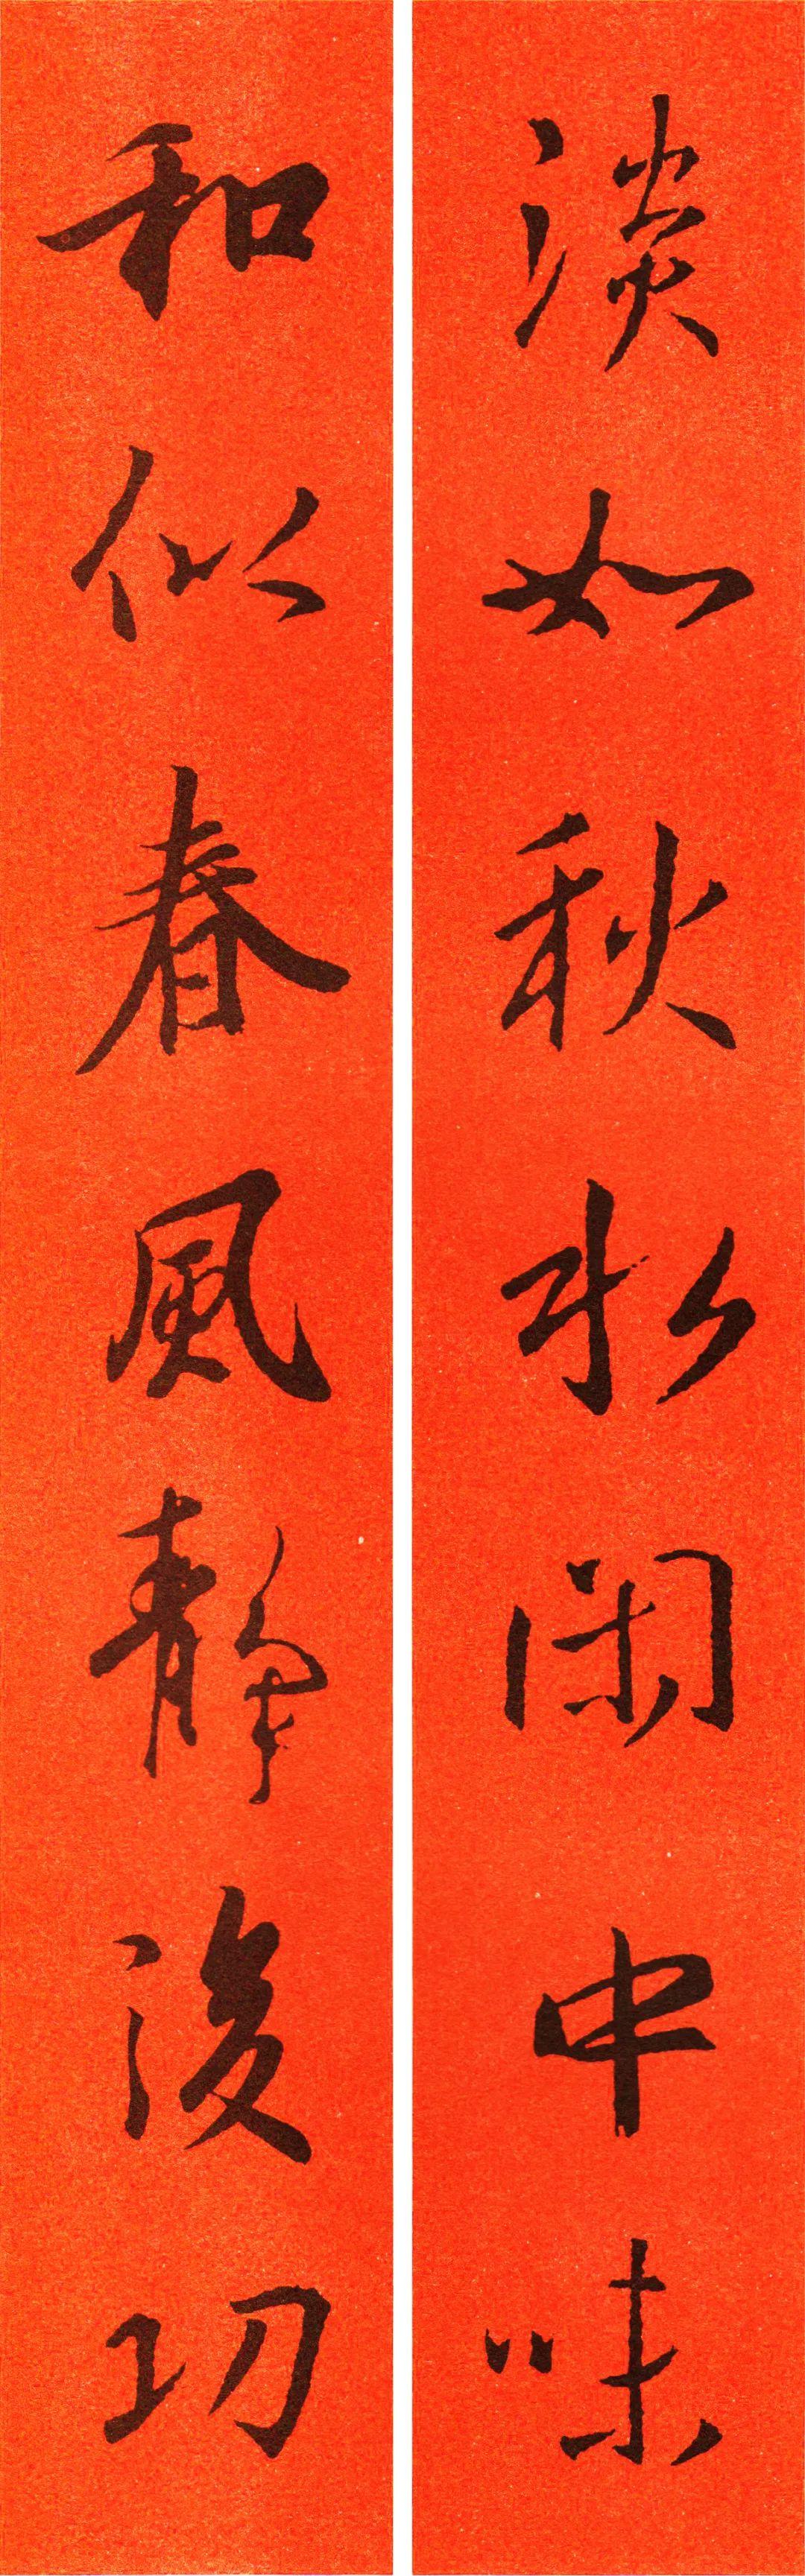 淡如秋水閑中味
和似春風靜後功